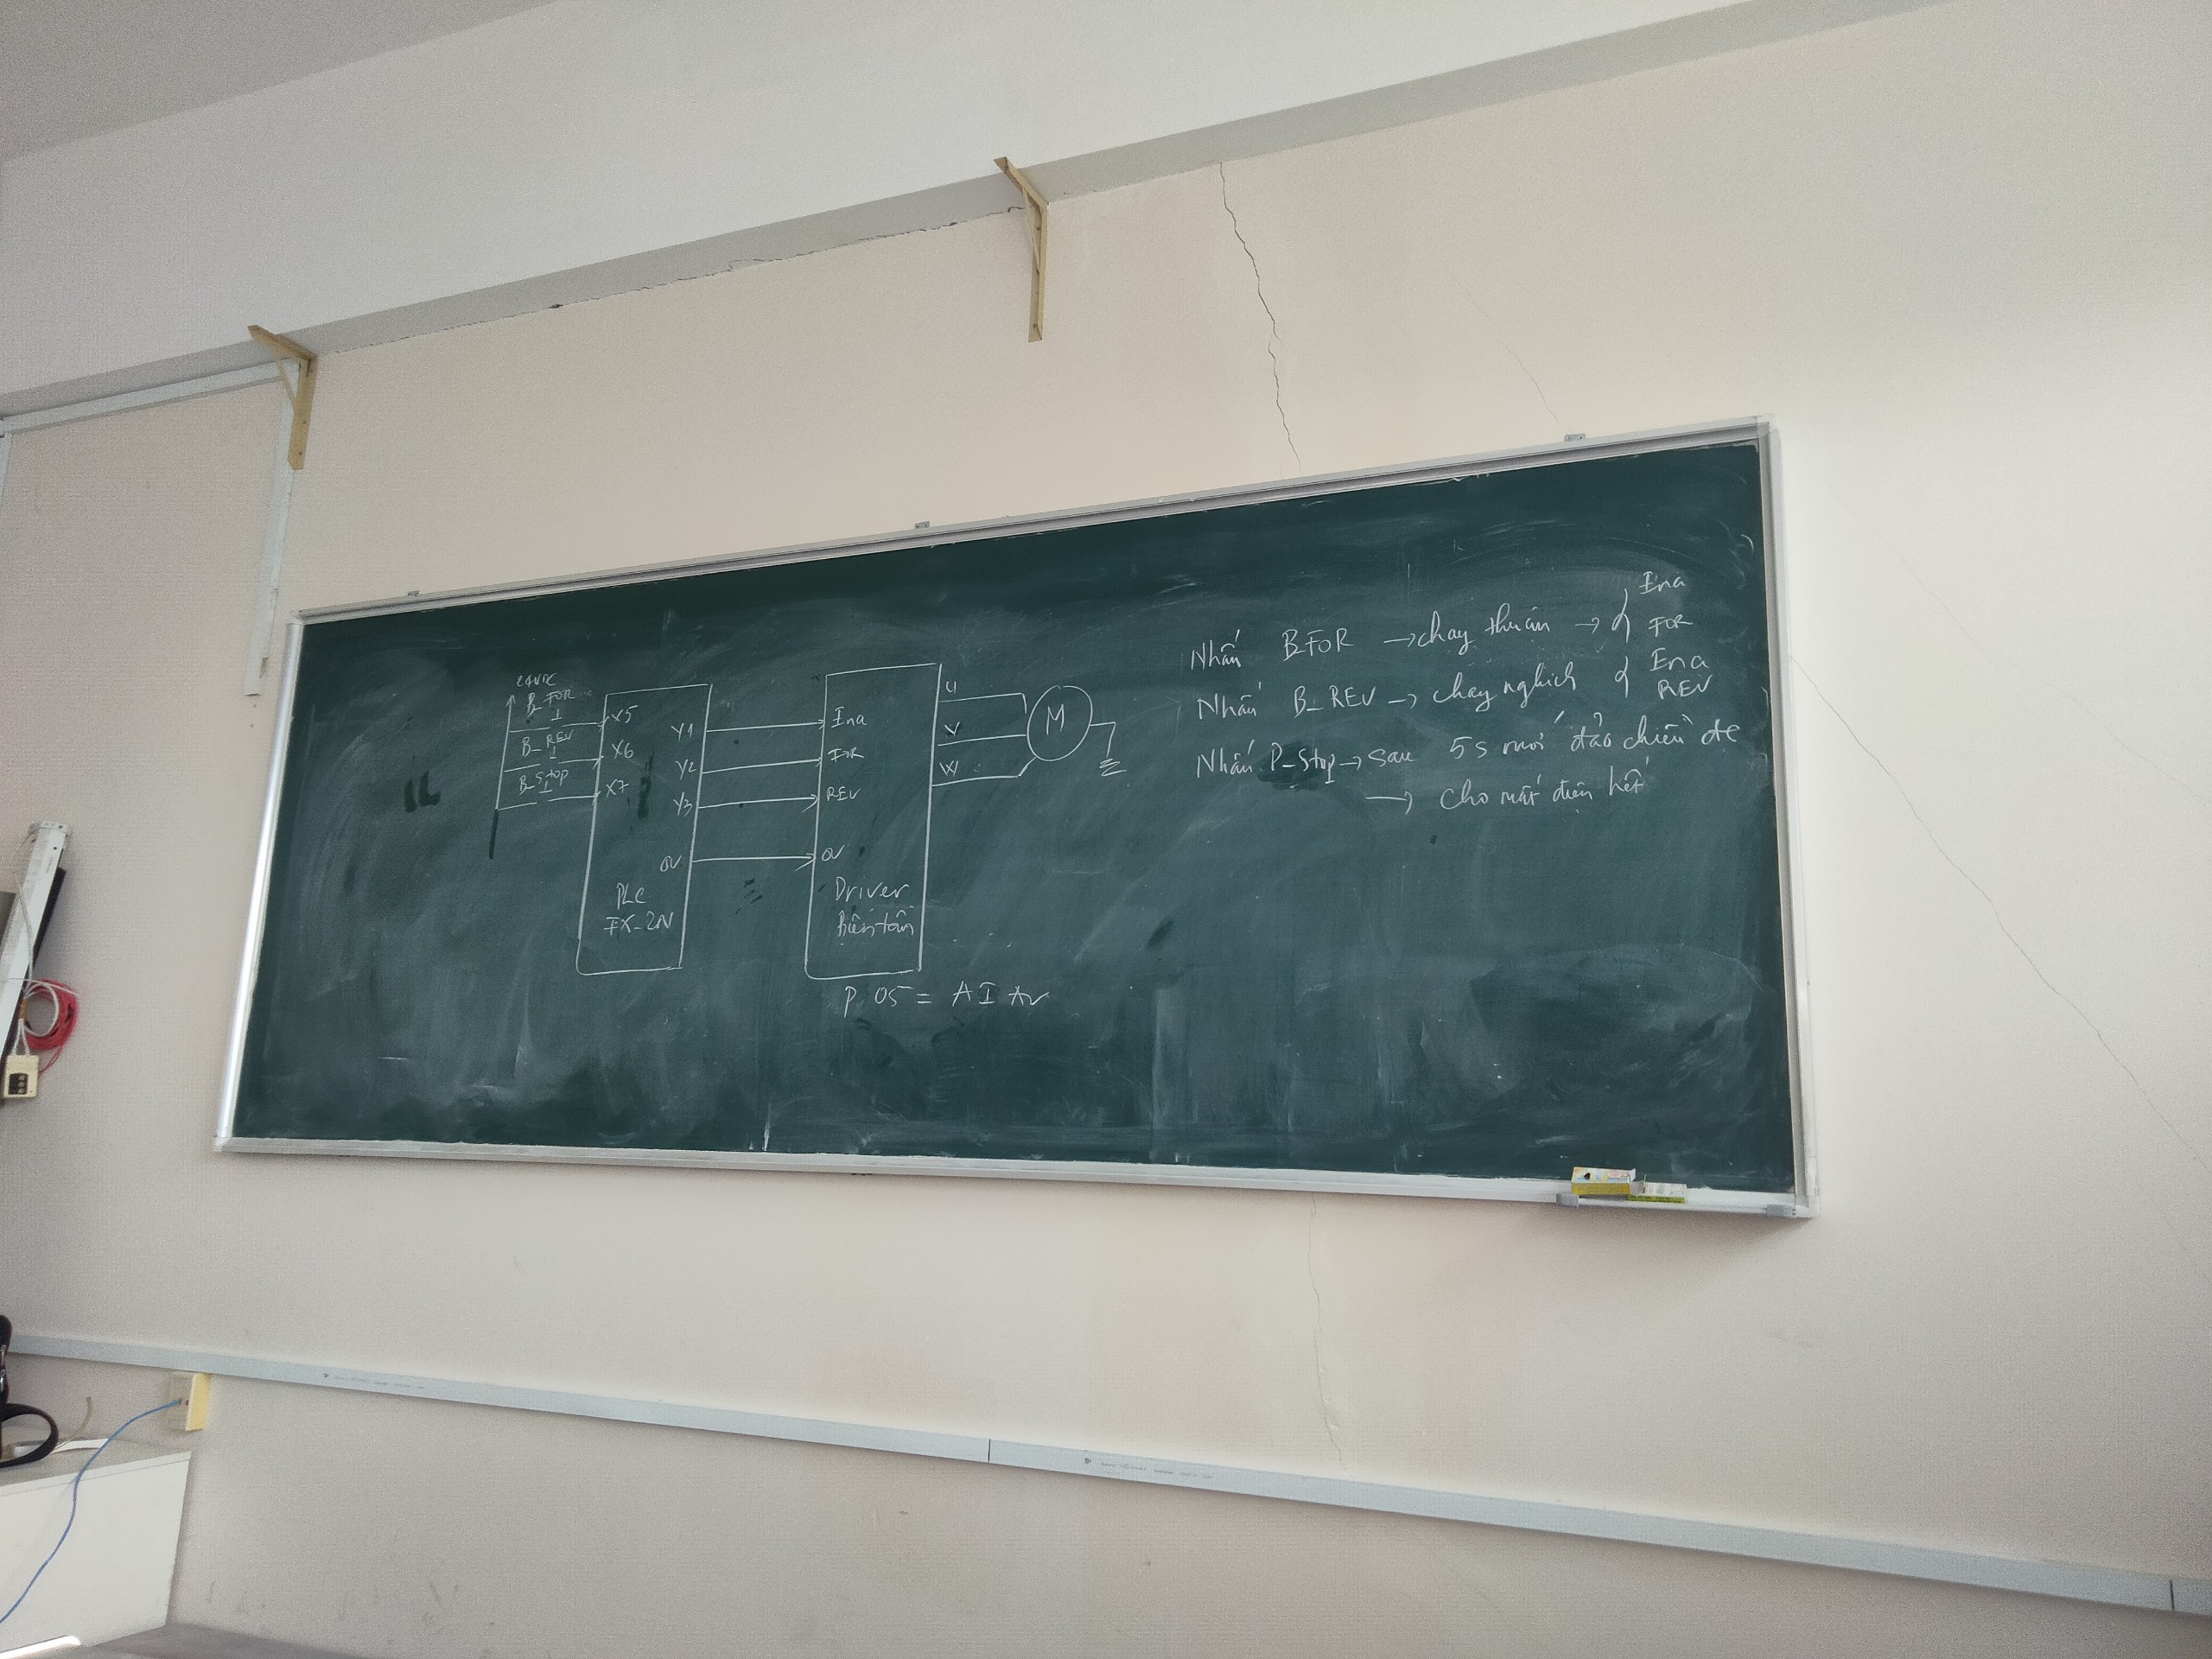 24VDC
B_FOR
X5
B_REV
X6
B_Stop
X7
Y1
Y2
Y3
0V
PLC
FX-2N
Ina
FOR
REV
0V
Driver
Biến tần
U
V
W
M
P 05 = AI
Nhấn B_FOR → chạy thuận → { Ina
FOR
Nhấn B_REV → chạy nghịch { Ena
REV
Nhấn P_Stop → sau 5s mới đảo chiều đc
→ cho mất điện hết